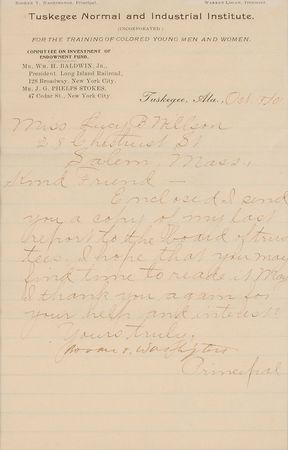 BOOKER T. WASHINGTON, PRINCIPAL. WARREN LOGAN, TREASURER.
Tuskegee Normal and Industrial Institute.
(INCORPORATED)
FOR THE TRAINING OF COLORED YOUNG MEN AND WOMEN.
COMMITTEE ON INVESTMENT OF
ENDOWMENT FUND.
MR. WM. H. BALDWIN, JR.,
President Long Island Railroad,
128 Broadway, New York City.
MR. J. G. PHELPS STOKES,
47 Cedar St., New York City
Tuskegee, Ala., Oct.
Miss Lucy B Willson
28 Chestnut St
Salem, Mass,
Kind Friend —
Enclosed I send
you a copy of my last
report to the board of trus
tees. I hope that you may
find time to read it. May
I thank you again for
your help and interest?
Yours truly,
Booker T. Washington
Principal